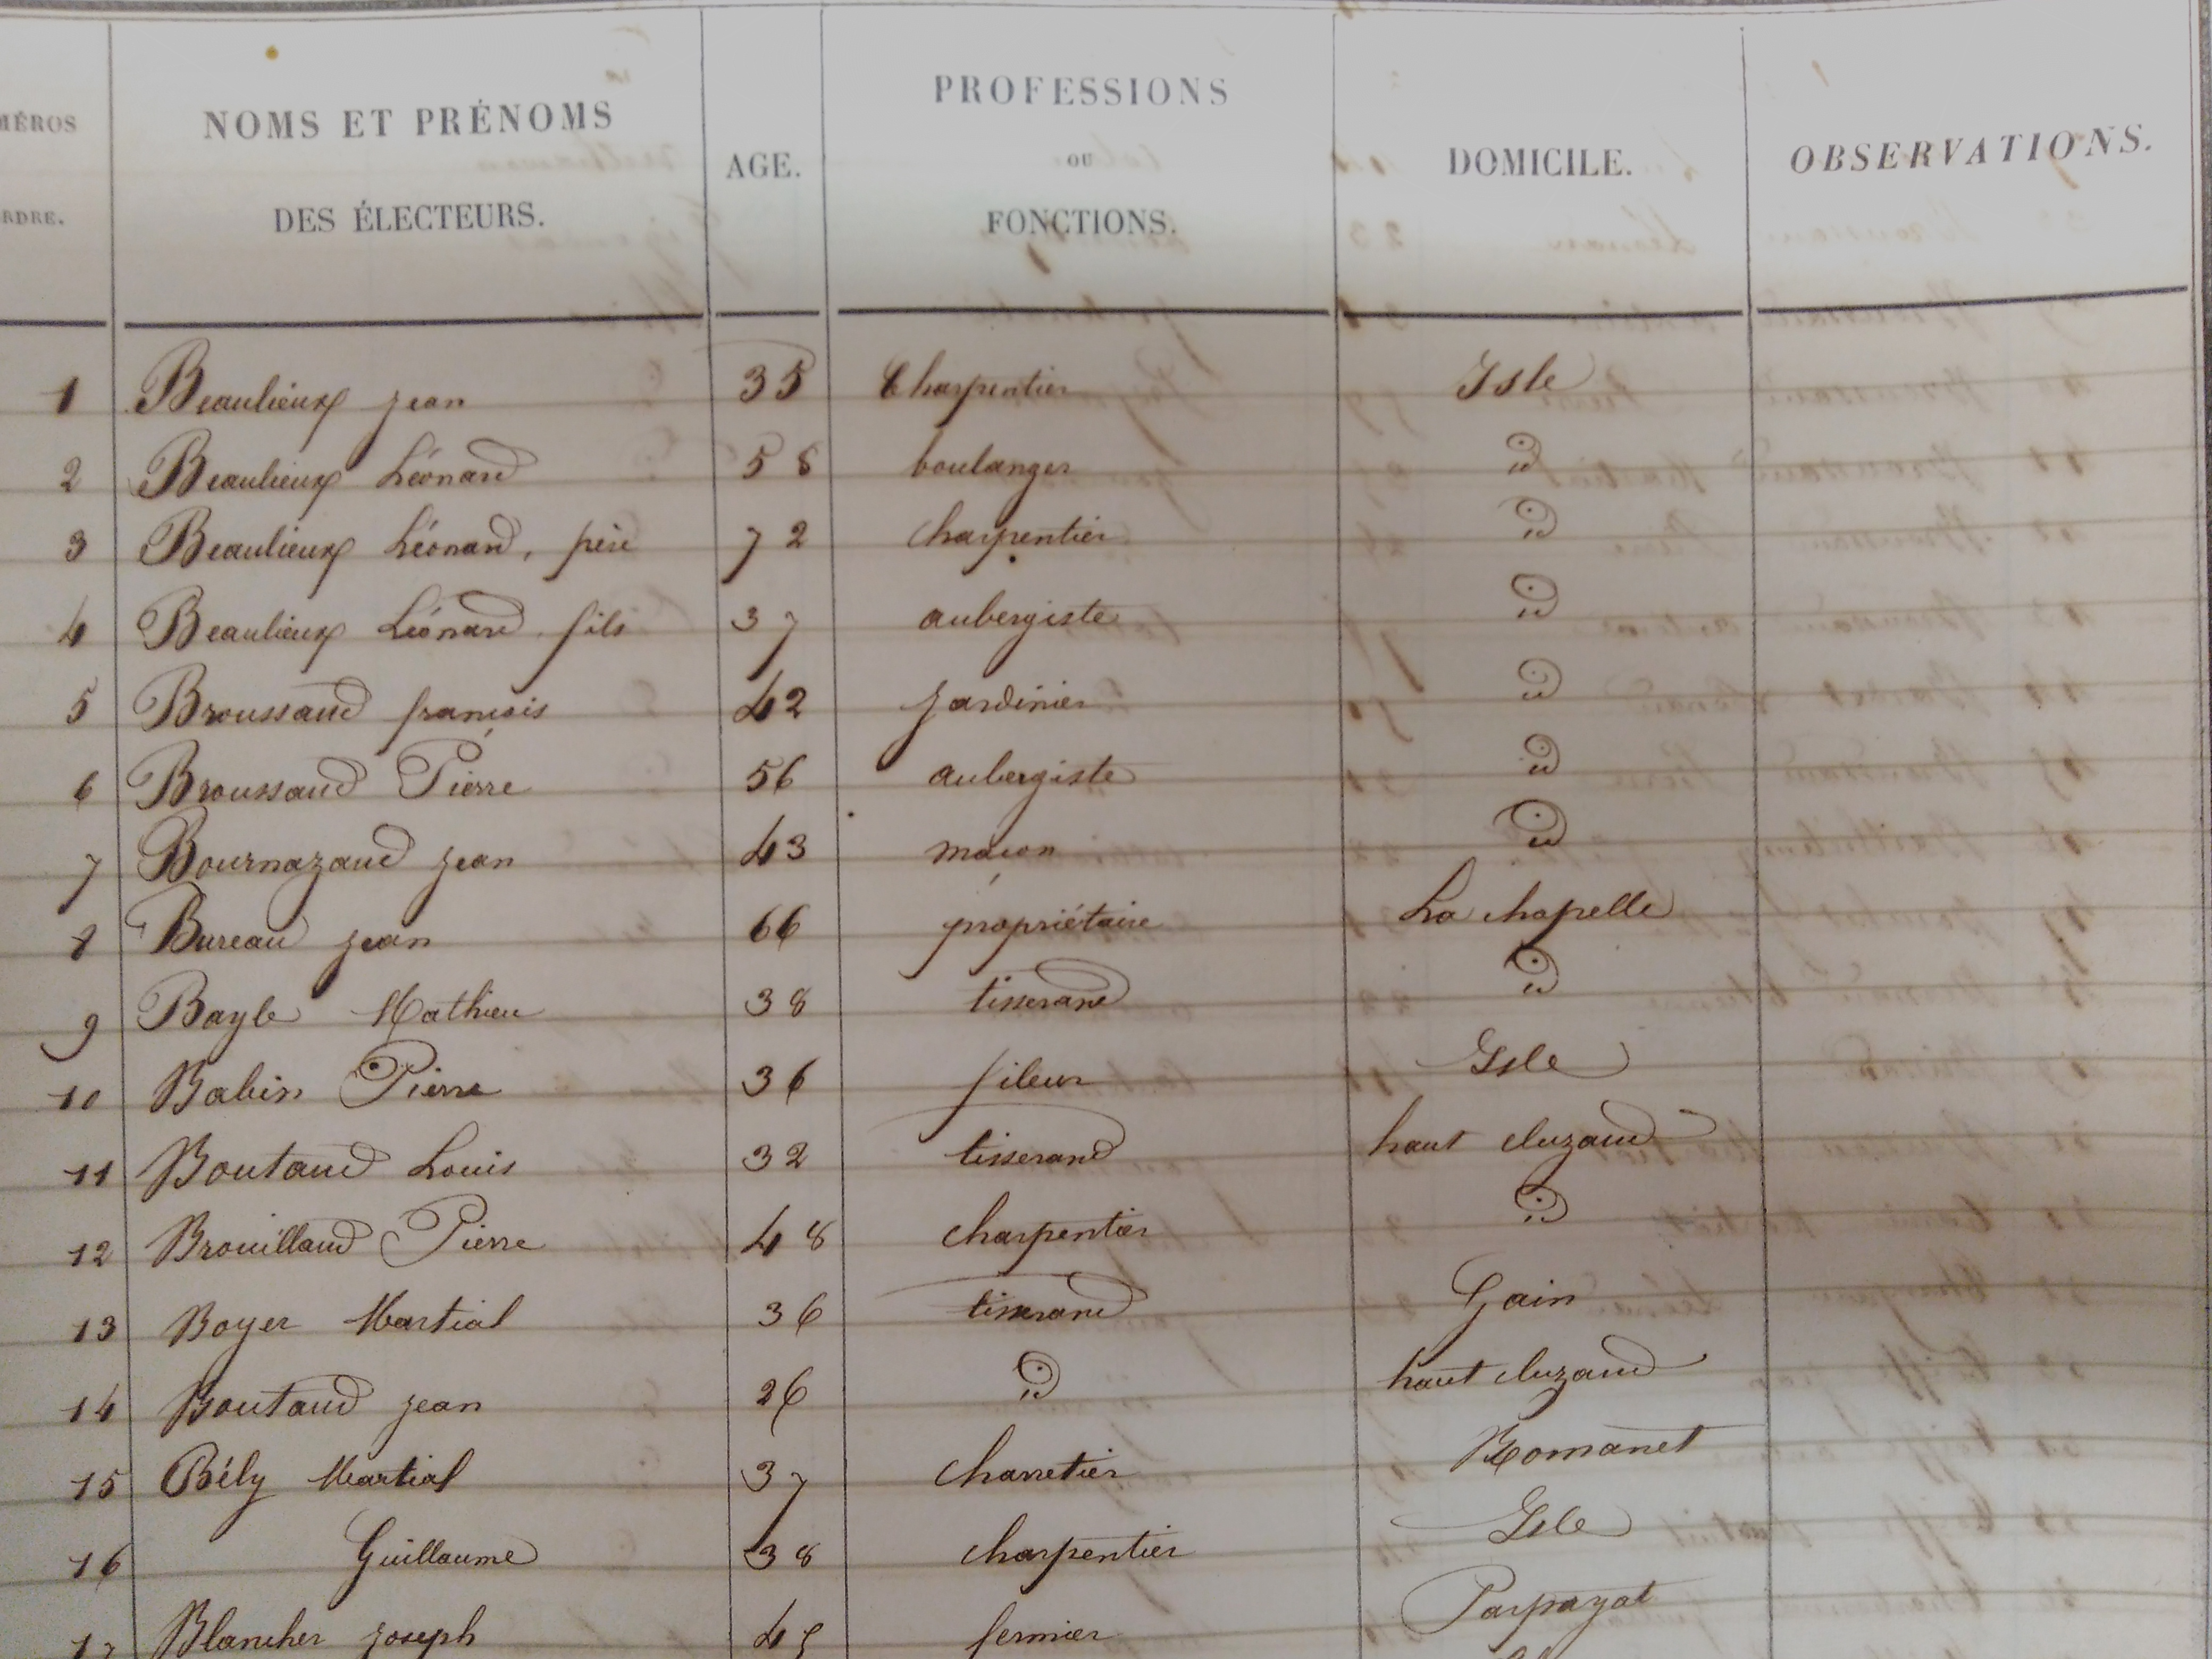 MÉROS
RDRE.
NOMS ET PRÉNOMS
DES ÉLECTEURS.
AGE.
PROFESSIONS
OU
FONCTIONS.
DOMICILE.
OBSERVATIONS.
1 Beaulieux jean 35 Charpentier Isle
2 Beaulieux Léonard 58 boulanger id
3 Beaulieux Léonard, père 72 charpentier id
4 Beaulieux Léonard fils 37 aubergiste id
5 Broussaud françois 42 jardinier id
6 Broussaud Pierre 56 aubergiste id
7 Bournazaud jean 43 maçon id
8 Bureau jean 66 propriétaire La chapelle
9 Bayle Mathieu 38 tisserand id
10 Babin Pierre 36 fileur Isle
11 Boutaud Louis 32 tisserand haut cluzaud
12 Brouillaud Pierre 48 charpentier id
13 Boyer Martial 36 tisserand Gain
14 Boutaud jean 26 id haut cluzaud
15 Bély Martial 37 charretier Romanet
16 Guillaume 38 charpentier Isle
17 Blancher joseph 45 fermier Parpayat